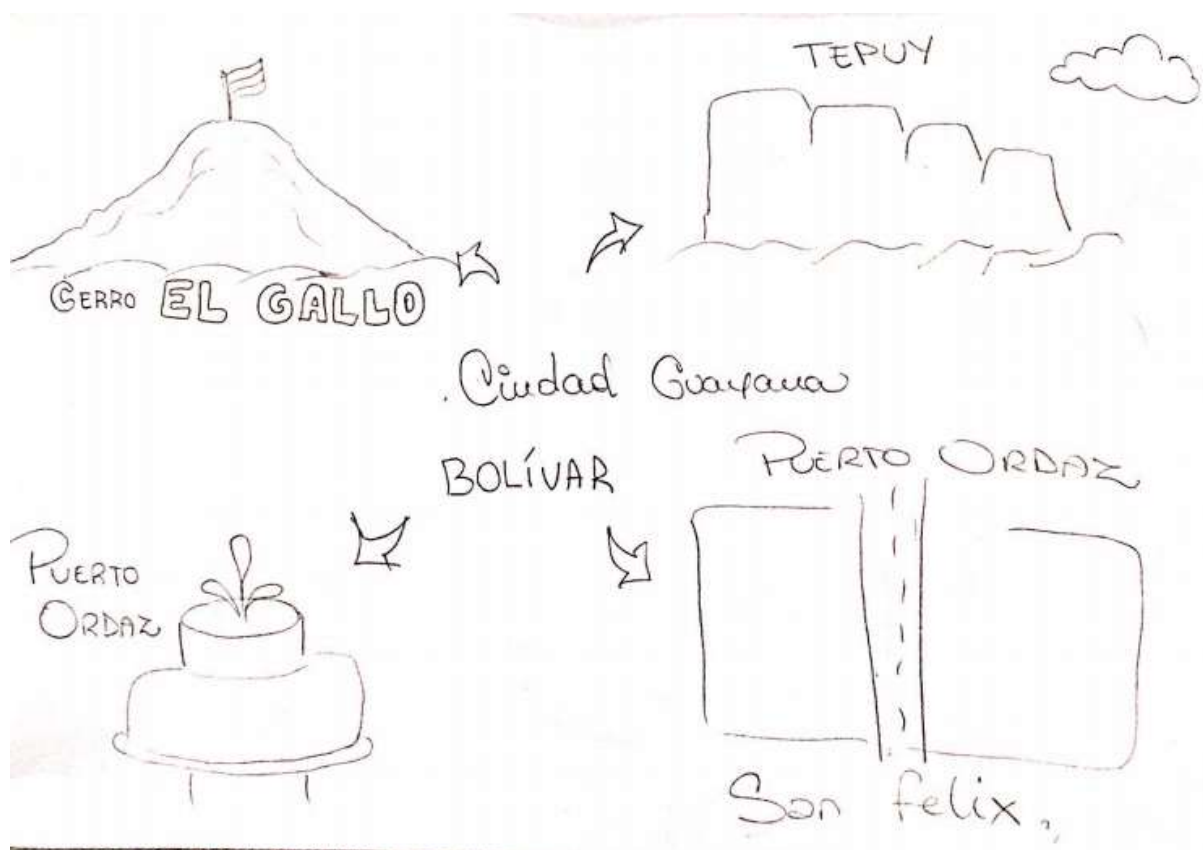 TEPUY
CERRO EL GALLO
Ciudad Guayana
BOLÍVAR
PUERTO ORDAZ
PUERTO
ORDAZ
San felix.